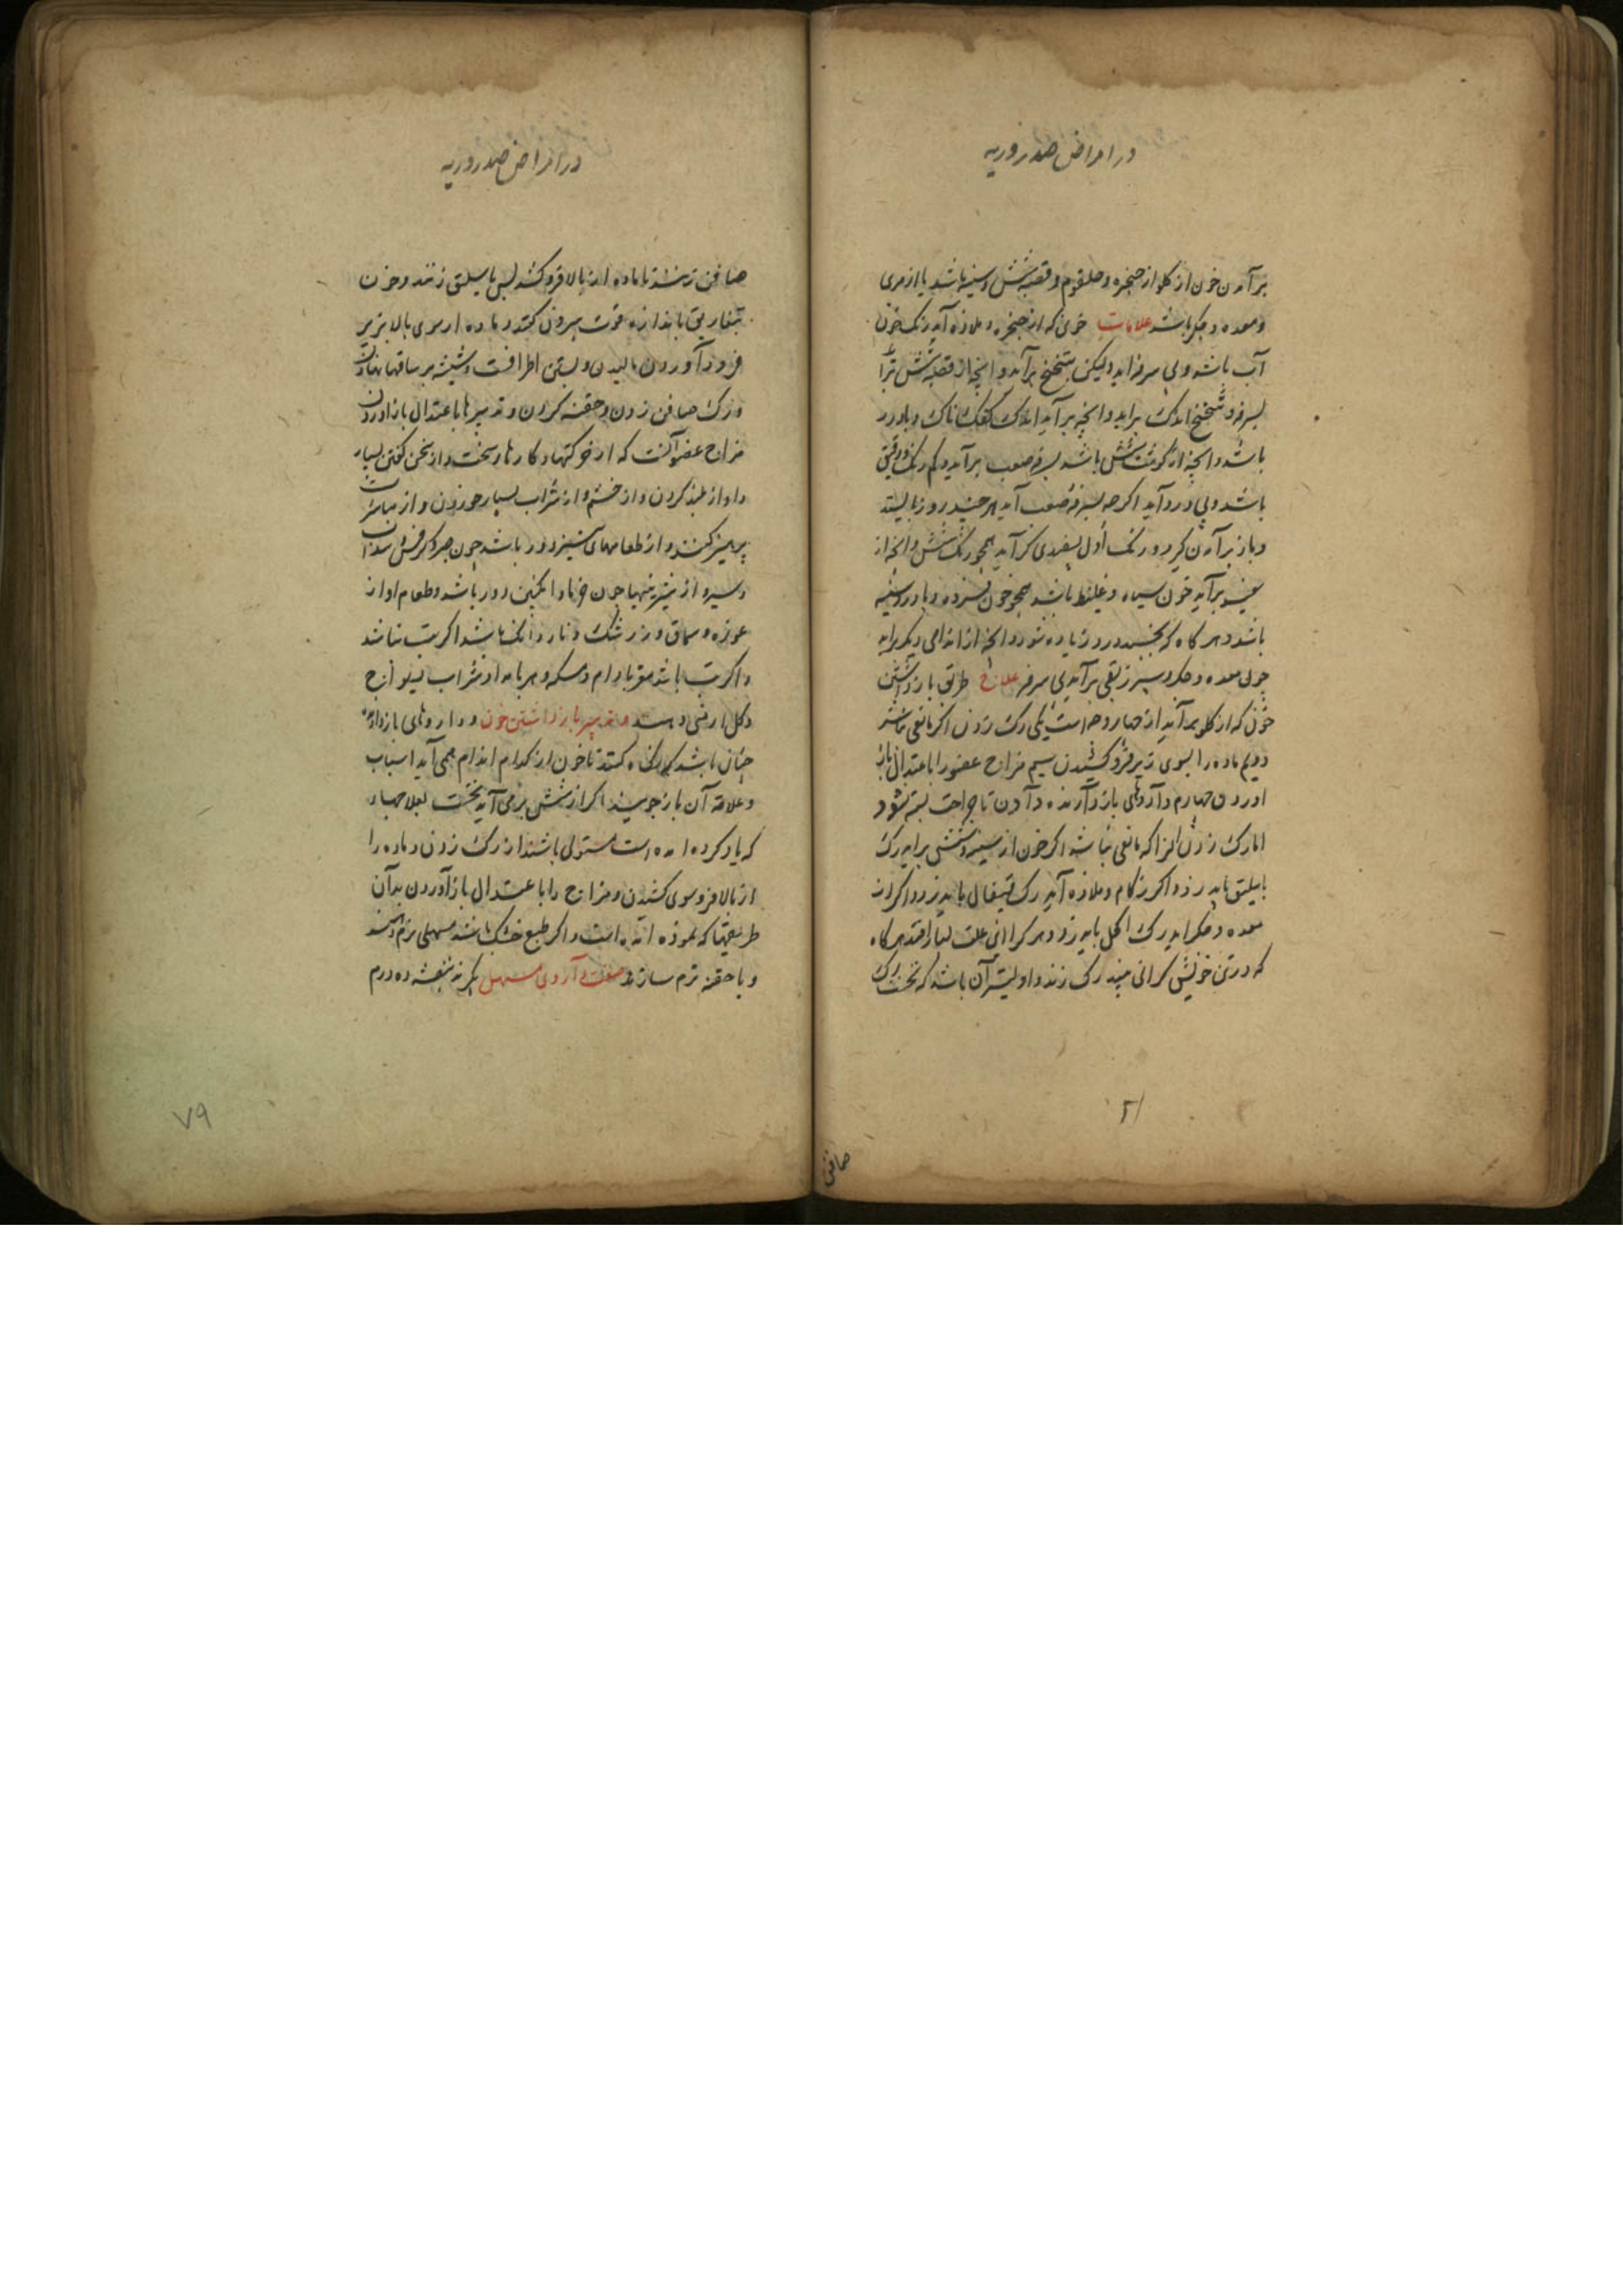 در امراض صدر و ریه
بر آمدن خون از کلو از حنجره و حلقوم و قصبه شش و سینه باشد یا از مری
و معده و جکر باشد علامات خونی که از حنجره و ملازه آید رنک خون
آب باشد و بی سرفه اید ولیکن بتنخنح برآید و انچه از قصبه شش برآ
بسرفه و تنخنح اندک براید و انچه بر آید اندک کفک ناک و با درد
باشد و انچه از کوشت شش باشد بسرفه صعب برآید و کم رنک و رقیق
باشد و بی درد آید اکرچه بسرفه صعب آید هر چند روز بایستد
و باز بر آمدن کیرد و رنک اول بسفیدی کراید همجو رنک شش و انچه از
سینه برآید خون سیاه و غلیظ باشد همجو خون فسرده و با درد سینه
باشد و هر کاه که بخسبد درد زیاده شود و انچه از اندامی دیکر براید
چون معده و جکر و سپرز بقی برآید بی سرفه علاج طریق باز داشتن
خون که از کلو بر آید از چهار وجه است یکی رک زدن اکر مانعی نباشد
دویم ماده را بسوی زیر فرو کشیدن سیم مزاج عضو را باعتدال باز
اوردن چهارم داروهای باز دارنده دادن تا جراحت بسته شود
اما رک زدن انرا که مانعی نباشد اکر خون از سینه و شش براید رک
باسلیق باید زد و اکر از کام و ملازه آید رک قیفال باید زد و اکر از
معده و جکر اید رک اکحل باید زد و هر کرا این علت بسیار افتد هر کاه
که در تن خویش کرانی بیند رک زند و اولیتر آن باشد که نخست رک
صافن
۲۱
در امراض صدر و ریه
صافن زنند تا ماده از بالا فرو کشد پس باسلیق زنند و خون
بتفاریق باندازه قوت بیرون کنند و ماده از سوی بالا بزیر
فرود آوردن مالیدن و بستن اطرافست و شیشه بر ساقها نهادن
و رک صافن زدن و حقنه کردن و تدبیرها باعتدال باز اوردن
مزاج عضو آنست که از حرکتها و کارهاء سخت و از سخن کفتن بسیار
و اواز بلند کردن و از خشم و از شراب بسیار خوردن و از مباشرت
پرهیز کنند و از طعامهای تیز دور باشد چون جرجیر و کرفس و سداب
و سیر و از شیرینیها چون خرما و انکبین دور باشد و طعام او از
غوره و سماق و زرشک و ناردانک باشد اکر تب نباشد
و اکر تب باشد مزوره بادام و مسکه و هر بامداد شراب نیلو ازج
و کل ارمنی دهند و تدبیر باز داشتن خون و داروهای باز دارنده
چنان باشد که نکاه کنند تا خون از کدام اندام همی آید اسباب
و علامة آن باز جویند اکر از شش بر می آید نخست بعلاجها
که یاد کرده امده است مشغول باشند از رک زدن و ماده را
از بالا فرو سوی کشیدن و مزاج را باعتدال باز آوردن بدآن
طریقها که نموذه امده است و اکر طبع خشک باشد بمسهلی نرم
و یا حقنه نرم سازند صفت داروی مسهل بکیرند بنفشه ده درم
۷۹